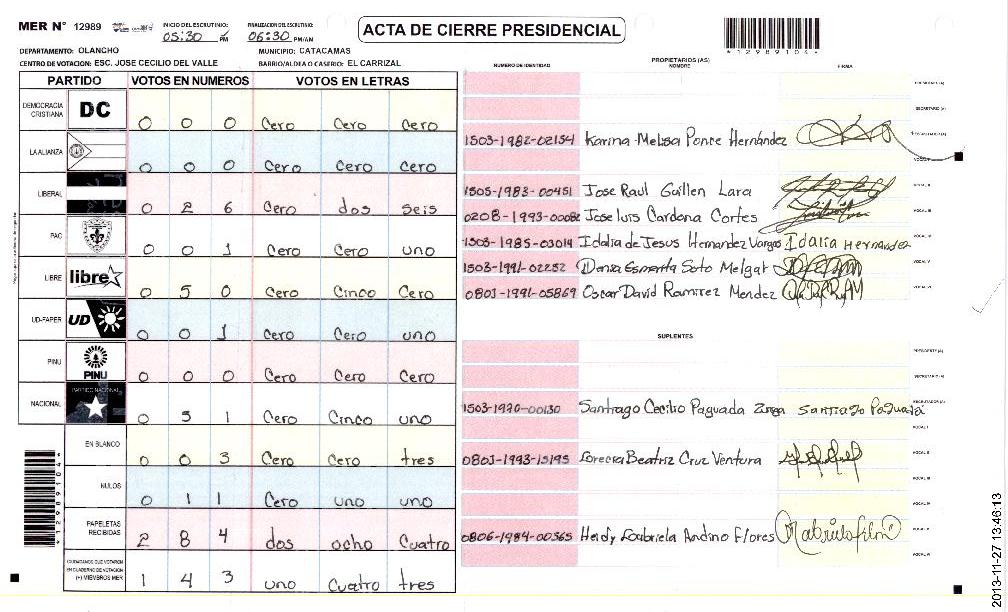 MER Nº 12989
INICIO DEL ESCRUTINIO: 05:30 PM
FINALIZACION DEL ESCRUTINIO: 06:30 PM/AM
ACTA DE CIERRE PRESIDENCIAL
*12989104*
DEPARTAMENTO: OLANCHO
MUNICIPIO: CATACAMAS
CENTRO DE VOTACION: ESC. JOSE CECILIO DEL VALLE
BARRIO/ALDEA O CASERIO: EL CARRIZAL
PARTIDO VOTOS EN NUMEROS VOTOS EN LETRAS
DEMOCRACIA CRISTIANA DC 0 0 0 Cero Cero Cero
LA ALIANZA 0 0 0 Cero Cero Cero
LIBERAL 0 2 6 Cero dos seis
PAC 0 0 1 Cero Cero uno
LIBRE libre 0 5 0 Cero Cinco Cero
UD-FAPER UD 0 0 1 Cero Cero uno
PINU PINU 0 0 0 Cero Cero Cero
NACIONAL PARTIDO NACIONAL 0 5 1 Cero Cinco uno
EN BLANCO 0 0 3 Cero Cero tres
NULOS 0 1 1 Cero uno uno
PAPELETAS RECIBIDAS 2 8 4 dos ocho Cuatro
CIUDADANOS QUE VOTARON EN CUADERNO DE VOTACION (+) MIEMBROS MER 1 4 3 uno Cuatro tres
*12989104*
PROPIETARIOS (AS)
NUMERO DE IDENTIDAD NOMBRE FIRMA
PRESIDENTE (A)
SECRETARIO (A)
1503-1982-02154 Karina Melisa Ponce Hernández ESCRUTADOR (A)
VOCAL I
1505-1983-00451 Jose Raul Guillen Lara VOCAL II
0208-1993-00082 Jose Luis Cardona Cortes VOCAL III
1503-1985-03014 Idalia de Jesus Hernandez Vargas Idalia Hernandez VOCAL IV
1503-1991-02252 Esmerita Soto Melgar VOCAL V
0801-1991-05869 Oscar David Ramirez Mendez VOCAL VI
SUPLENTES
PRESIDENTE (A)
SECRETARIO (A)
1503-1970-00130 Santiago Cecilio Paguada Santiago Paguada ESCRUTADOR (A)
VOCAL I
0801-1993-15195 Beatriz Cruz Ventura VOCAL II
VOCAL III
VOCAL IV
0806-1984-00365 Heidy Gabriela Andino Flores VOCAL V
VOCAL VI
2013-11-27 13:46:13